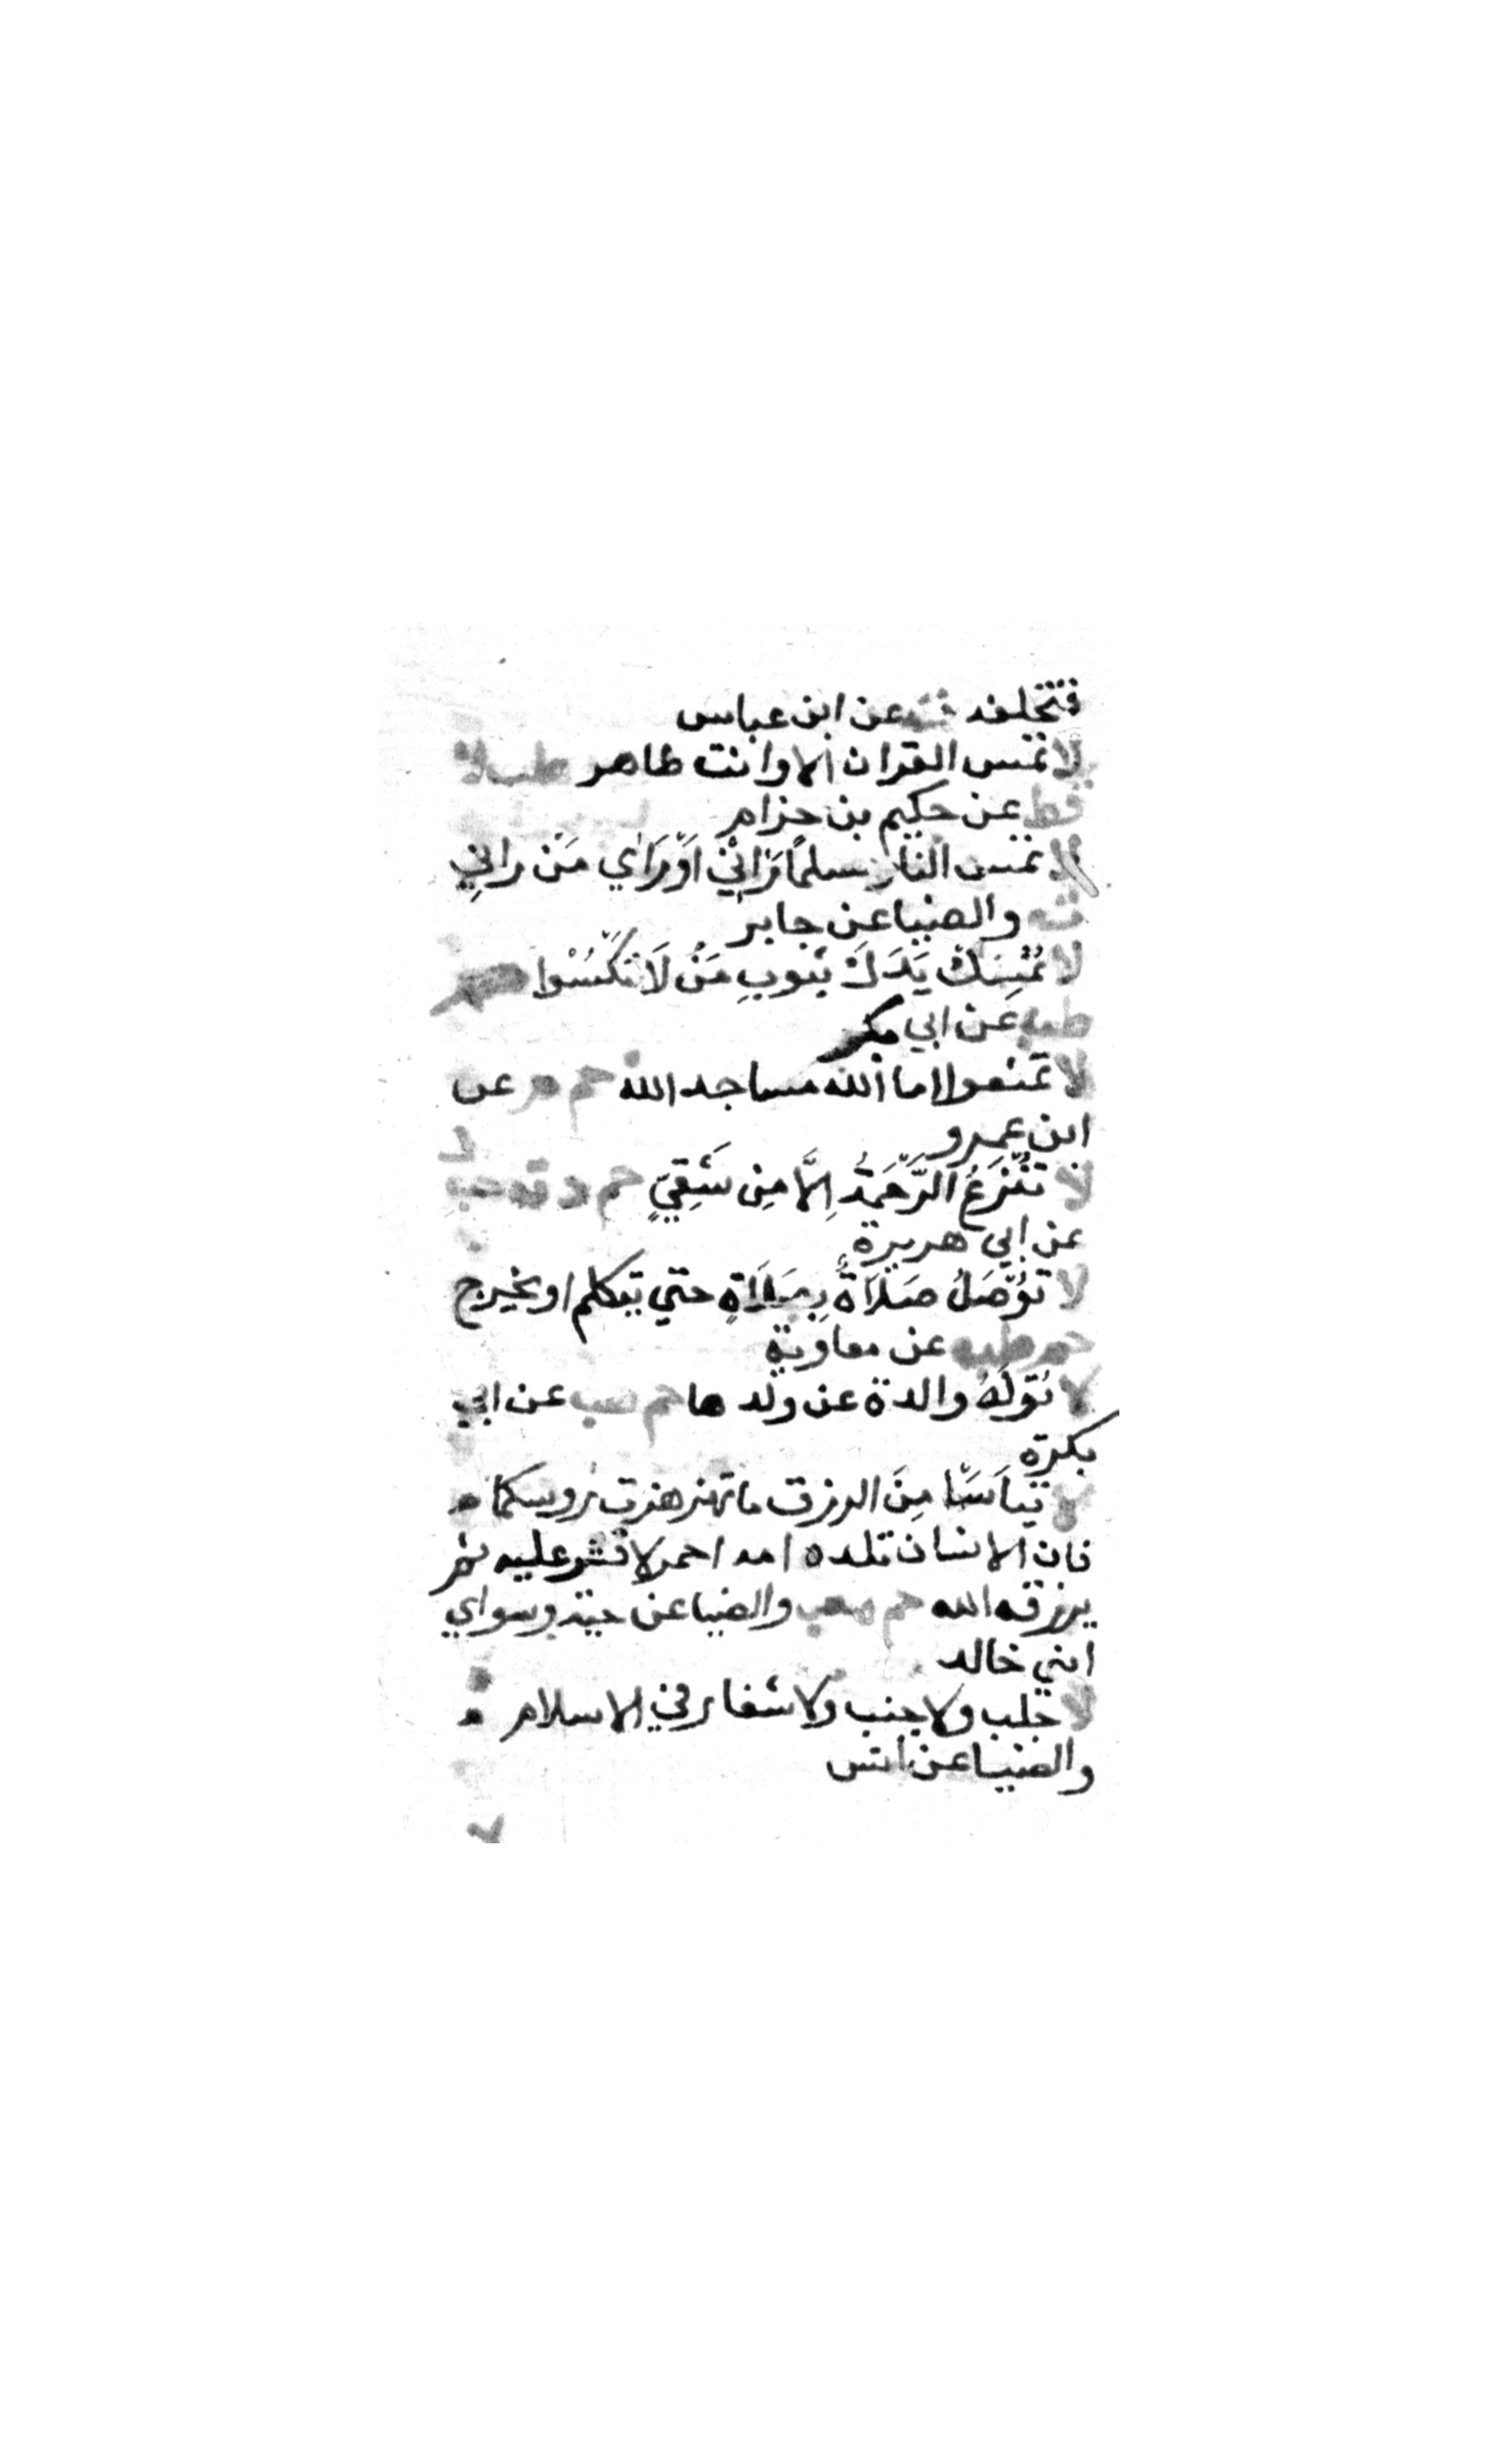 فتخلفه ت عن ابن عباس
لا تمس القران الا وانت طاهر طب ك
قط عن حكيم بن حزام
لا تمس النار مسلمًا رَاَنيْ اَوْ رَاٰي مَنْ راٰنِي
ت والضيا عن جابر
لا تُمْسِكْ يَدَكَ بثوبِ مَنْ لَا تكْسُوا حم
طب عن ابي بكر
لا تمنعوا اما الله مساجد الله حم م عن
ابن عمرو
لا تُنْزَعُ الرَّحْمَةُ اِلَّا مِن شَقِيٍّ حم د ت حب
عن ابي هريرة
لا تُوْصَلُ صَلَاةٌ بِصَلَاةٍ حتي يتكلم او يخرج
حم طب عن معاوية
لا تُوَلَّهُ والدة عن ولدها حم هب عن ابي
بكرة
لا تيأسَا مِنَ الرزق ما تهزهزت روسكما
فان الانسان تلده امه احمر لا قشر عليه ثم
يرزقه الله حم حب والضيا عن حبة وسواي
ابني خالد
لا جلب ولا جنب ولا شغار في الاسلام ن
والضيا عن انس
لا